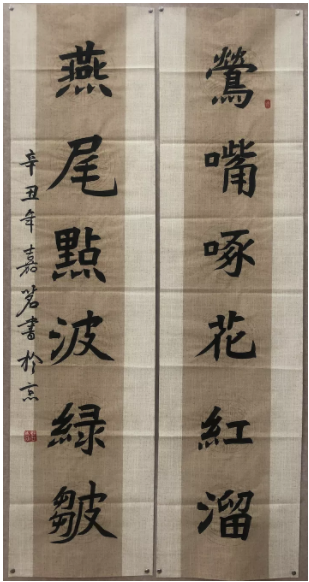 鶯嘴啄花紅溜
燕尾點波緑皺
辛丑年嘉茗書於京